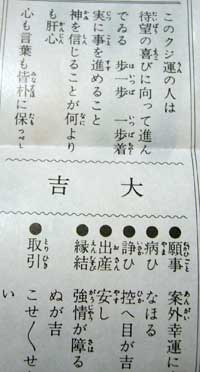 このクジ運の人は
待望の喜びに向って進ん
でゐる　歩一歩　一歩着
実に事を進めること
神を信じることが何より
も肝心
心も言葉も　に保つ
大吉
●願事　案外幸運に
●病ひ　なほる
●諍ひ　控へ目が吉
●出産　安し
●縁結　強情が障る
ぬが吉
●取引　こせ〳〵せ
い